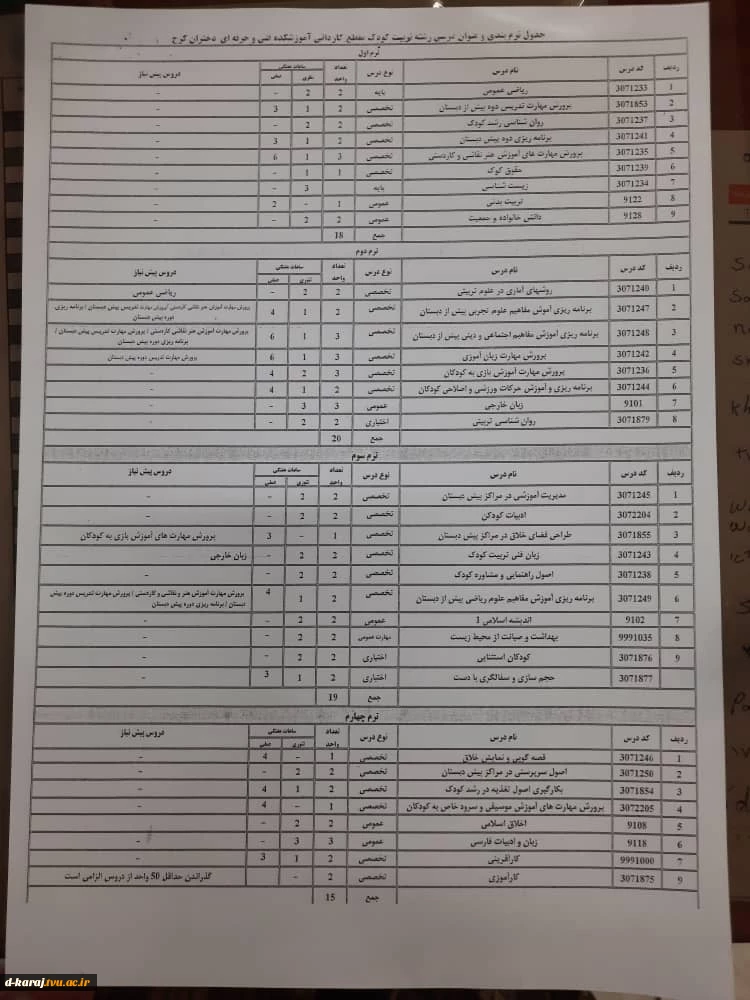 جدول ترم بندی و عنوان درسی رشته تربیت کودک مقطع کاردانی آموزشکده فنی و حرفه ای دختران کرج
ترم اول
ردیف کد درس نام درس نوع درس تعداد واحد ساعات هفتگی تئوری عملی دروس پیش نیاز
1 3071233 ریاضی عمومی پایه 2 2 - -
2 3071853 پرورش مهارت تدریس دوه پیش از دبستان تخصصی 2 1 3 -
3 3071237 روان شناسی رشد کودک تخصصی 2 2 - -
4 3071241 برنامه ریزی دوه پیش دبستان تخصصی 2 1 3 -
5 3071235 پرورش مهارت های آموزش هنر نقاشی و کاردستی تخصصی 3 1 6 -
6 3071239 حقوق کوک تخصصی 1 1 - -
7 3071234 زیست شناسی پایه 3 - -
8 9122 تربیت بدنی عمومی 1 - 2 -
9 9128 دانش خانواده و جمعیت عمومی 2 2 - -
جمع 18
ترم دوم
ردیف کد درس نام درس نوع درس تعداد واحد ساعات هفتگی تئوری عملی دروس پیش نیاز
1 3071240 روشهای آماری در علوم تربیتی تخصصی 2 2 - ریاضی عمومی
2 3071247 برنامه ریزی آموش مفاهیم علوم تجربی بیش از دبستان تخصصی 2 1 4 پرورش مهارت آموزش هنر نقاشی کاردستی / پرورش مهارت تدریس پیش دبستان / برنامه ریزی دوره پیش دبستان
3 3071248 برنامه ریزی آموزش مفاهیم اجتماعی و دینی بیش از دبستان تخصصی 3 1 6 پرورش مهارت آموزش هنر نقاشی کاردستی / پرورش مهارت تدریس پیش دبستان / برنامه ریزی دوره پیش دبستان
4 3071242 پرورش مهارت زبان آموزی تخصصی 3 1 6 پرورش مهارت تدریس دوره پیش دبستان
5 3071236 پرورش مهارت آموزش بازی به کودکان تخصصی 3 2 4 -
6 3071244 برنامه ریزی و آموزش حرکات ورزشی و اصلاحی کودکان تخصصی 2 1 4 -
7 9101 زبان خارجی عمومی 3 3 - -
8 3071879 روان شناسی تربیتی اختیاری 2 2 - -
جمع 20
ترم سوم
ردیف کد درس نام درس نوع درس تعداد واحد ساعات هفتگی تئوری عملی دروس پیش نیاز
1 3071245 مدیریت آموزشی در مراکز پیش دبستان تخصصی 2 2 - -
2 3072204 ادبیات کودکن تخصصی 2 2 - -
3 3071855 طراحی فضای خلاق در مراکز پیش دبستان تخصصی 1 - 3 پرورش مهارت های آموزش بازی به کودکان
4 3071243 زبان فنی تربیت کودک تخصصی 2 2 - زبان خارجی
5 3071238 اصول راهنمایی و مشاوره کودک تخصصی 2 2 - -
6 3071249 برنامه ریزی آموزش مفاهیم علوم ریاضی بیش از دبستان تخصصی 2 1 4 پرورش مهارت آموزش هنر و نقاشی و کاردستی / پرورش مهارت تدریس دوره پیش دبستان / برنامه ریزی دوره پیش دبستان
7 9102 اندیشه اسلامی 1 عمومی 2 2 - -
8 9991035 بهداشت و صیانت از محیط زیست مهارت عمومی 2 2 - -
9 3071876 کودکان استثنایی اختیاری 2 2 - -
3071877 حجم سازی و سفالگری با دست اختیاری 2 1 3 -
جمع 19
ترم چهارم
ردیف کد درس نام درس نوع درس تعداد واحد ساعات هفتگی تئوری عملی دروس پیش نیاز
1 3071246 قصه گویی و نمایش خلاق تخصصی 1 - 4 -
2 3071250 اصول سرپرستی در مراکز پیش دبستان تخصصی 2 2 - -
3 3071854 بکارگیری اصول تغذیه در رشد کودک تخصصی 2 1 4 -
4 3072205 پرورش مهارت های آموزش موسیقی و سرود خاص به کودکان تخصصی 1 - 4 -
5 9108 اخلاق اسلامی عمومی 2 2 - -
6 9118 زبان و ادبیات فارسی عمومی 3 3 - -
7 9991000 کارآفرینی تخصصی 2 1 3 -
9 3071875 کارآموزی تخصصی 2 - گذراندن حداقل 50 واحد از دروس الزامی است
جمع 15
d-karaj.tvu.ac.ir